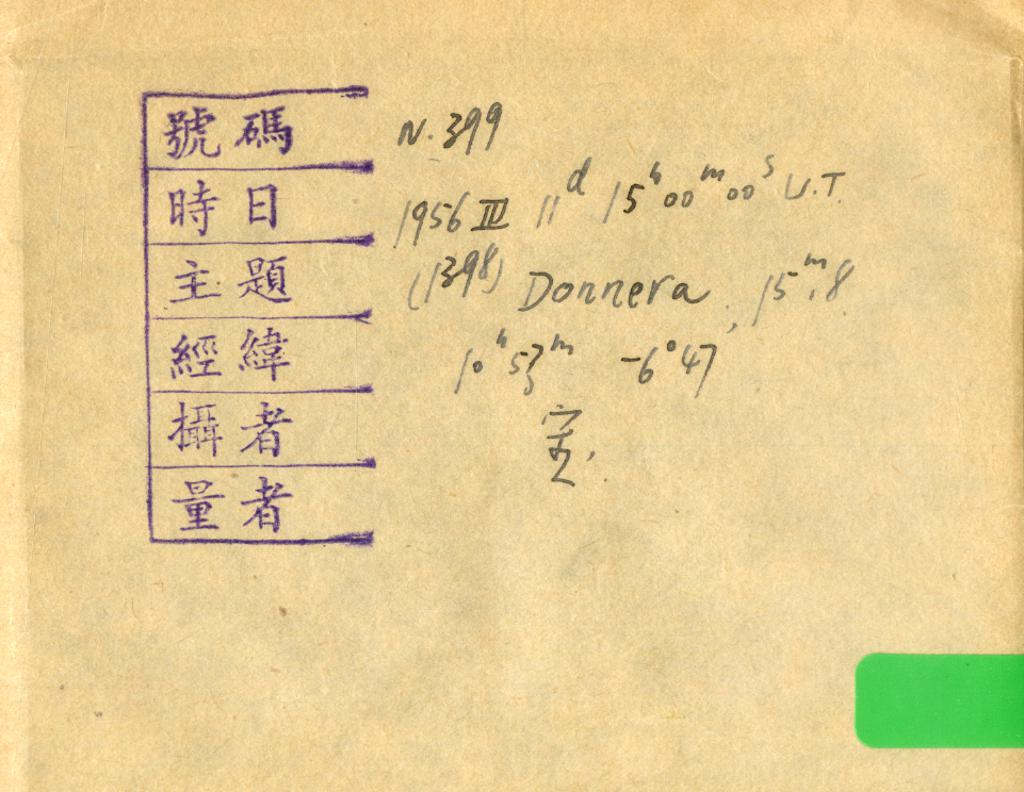 號碼 N. 399
時日 1956 III 11ᵈ 15ʰ00ᵐ00ˢ U.T.
主題 (1398) Donnera, 15ᵐ.8
經緯 10ʰ53ᵐ -6°47
攝者
量者